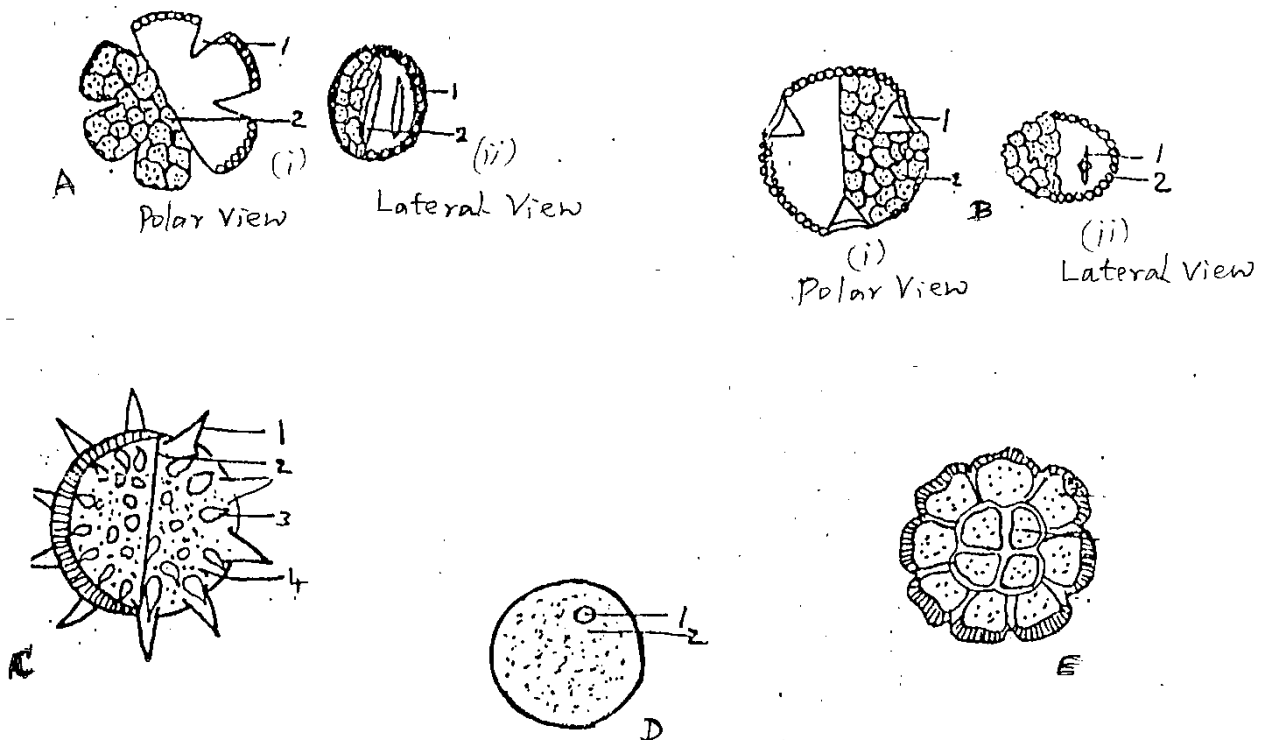 A
1
2
(i)
Polar View
1
2
(ii)
Lateral View
1
2
(i)
Polar View
B
1
2
(ii)
Lateral View
1
2
3
4
C
1
2
D
E